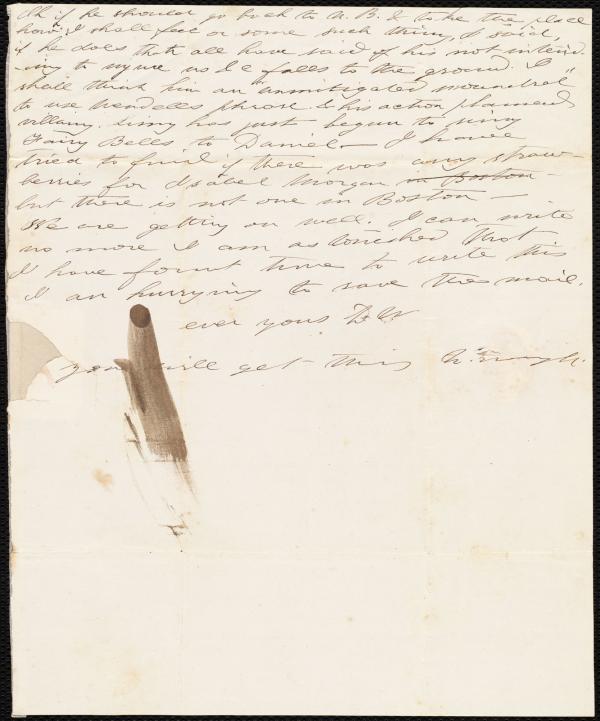 Oh if he should go back to N. B. & to be the place
how I shall feel or some such thing, I said,
if he does that all have said of his not intend-
ing to injure us &c falls to the ground. I
shall think him an unmitigated scoundrel"
to use Wendells phrase & his action planned
villainy. has just begun to sing
Fairy Bells to Daniel - I have
tried to find if there was any straw-
berries for Isabel Morgan in Boston -
but there is not one in Boston -
We are getting on well. I can write
no more I am astonished that
I have found time to write this
I am hurrying to save the mail.
ever yours D W
you will get this